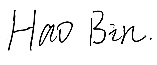 Hao Bin.